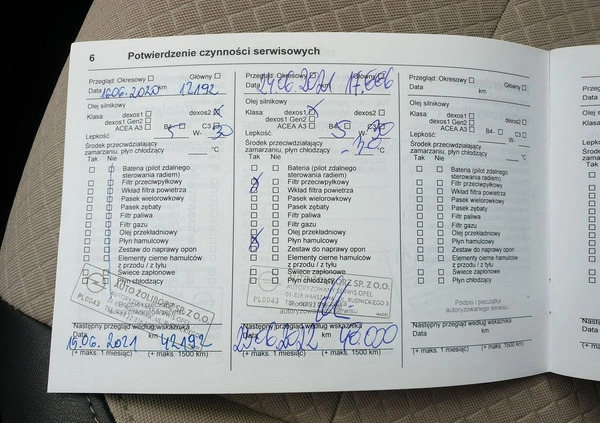 6 Potwierdzenie czynności serwisowych
Przegląd: Okresowy Główny
Data 16.06.2020 km 12192
Olej silnikowy
Klasa: dexos1 dexos2
dexos1 Gen2
ACEA A3 B4 C3
Lepkość: 5 W- 30
Środek przeciwdziałający
zamarzaniu, płyn chłodzący °C
Tak Nie
Bateria (pilot zdalnego
sterowania radiem)
Filtr przeciwpyłkowy
Wkład filtra powietrza
Pasek wielorowkowy
Pasek zębaty
Filtr paliwa
Filtr gazu
Olej przekładniowy
Płyn hamulcowy
Zestaw do naprawy opon
Elementy cierne hamulców
z przodu / z tyłu
Świece zapłonowe
Płyn chłodzący
AUTO ŻOLIBORZ SP. Z O.O.
PL0043
Następny przegląd według wskaźnika
Data 15.06.2021 km 42192
(+ maks. 1 miesiąc) (+ maks. 1500 km)
Przegląd: Okresowy Główny
Data 24.06.2021 km
Olej silnikowy
Klasa: dexos1 dexos2
dexos1 Gen2
ACEA A3 B4 C3
Lepkość: 5 W- 30
Środek przeciwdziałający
zamarzaniu, płyn chłodzący -30 °C
Tak Nie
Bateria (pilot zdalnego
sterowania radiem)
Filtr przeciwpyłkowy
Wkład filtra powietrza
Pasek wielorowkowy
Pasek zębaty
Filtr paliwa
Filtr gazu
Olej przekładniowy
Płyn hamulcowy
Zestaw do naprawy opon
Elementy cierne hamulców
z przodu / z tyłu
Świece zapłonowe
Płyn chłodzący
SP. Z O.O.
AUTORYZOWANY SERWIS OPEL
PL0043 01-858 RUDNICKIEGO 3
autoryzowanego serwisu
Następny przegląd według wskaźnika
Data km 46.000
(+ maks. 1 miesiąc) (+ maks. 1500 km)
Przegląd: Okresowy Główny
Data km
Olej silnikowy
Klasa: dexos1 dexos2
dexos1 Gen2
ACEA A3 B4 C3
Lepkość: W-
Środek przeciwdziałający
zamarzaniu, płyn chłodzący °C
Tak Nie
Bateria (pilot zdalnego
sterowania radiem)
Filtr przeciwpyłkowy
Wkład filtra powietrza
Pasek wielorowkowy
Pasek zębaty
Filtr paliwa
Filtr gazu
Olej przekładniowy
Płyn hamulcowy
Zestaw do naprawy opon
Elementy cierne hamulców
z przodu / z tyłu
Świece zapłonowe
Płyn chłodzący
Podpis i pieczątka
autoryzowanego serwisu
Następny przegląd według wskaźnika
Data km
(+ maks. 1 miesiąc) (+ maks. 1500 km)